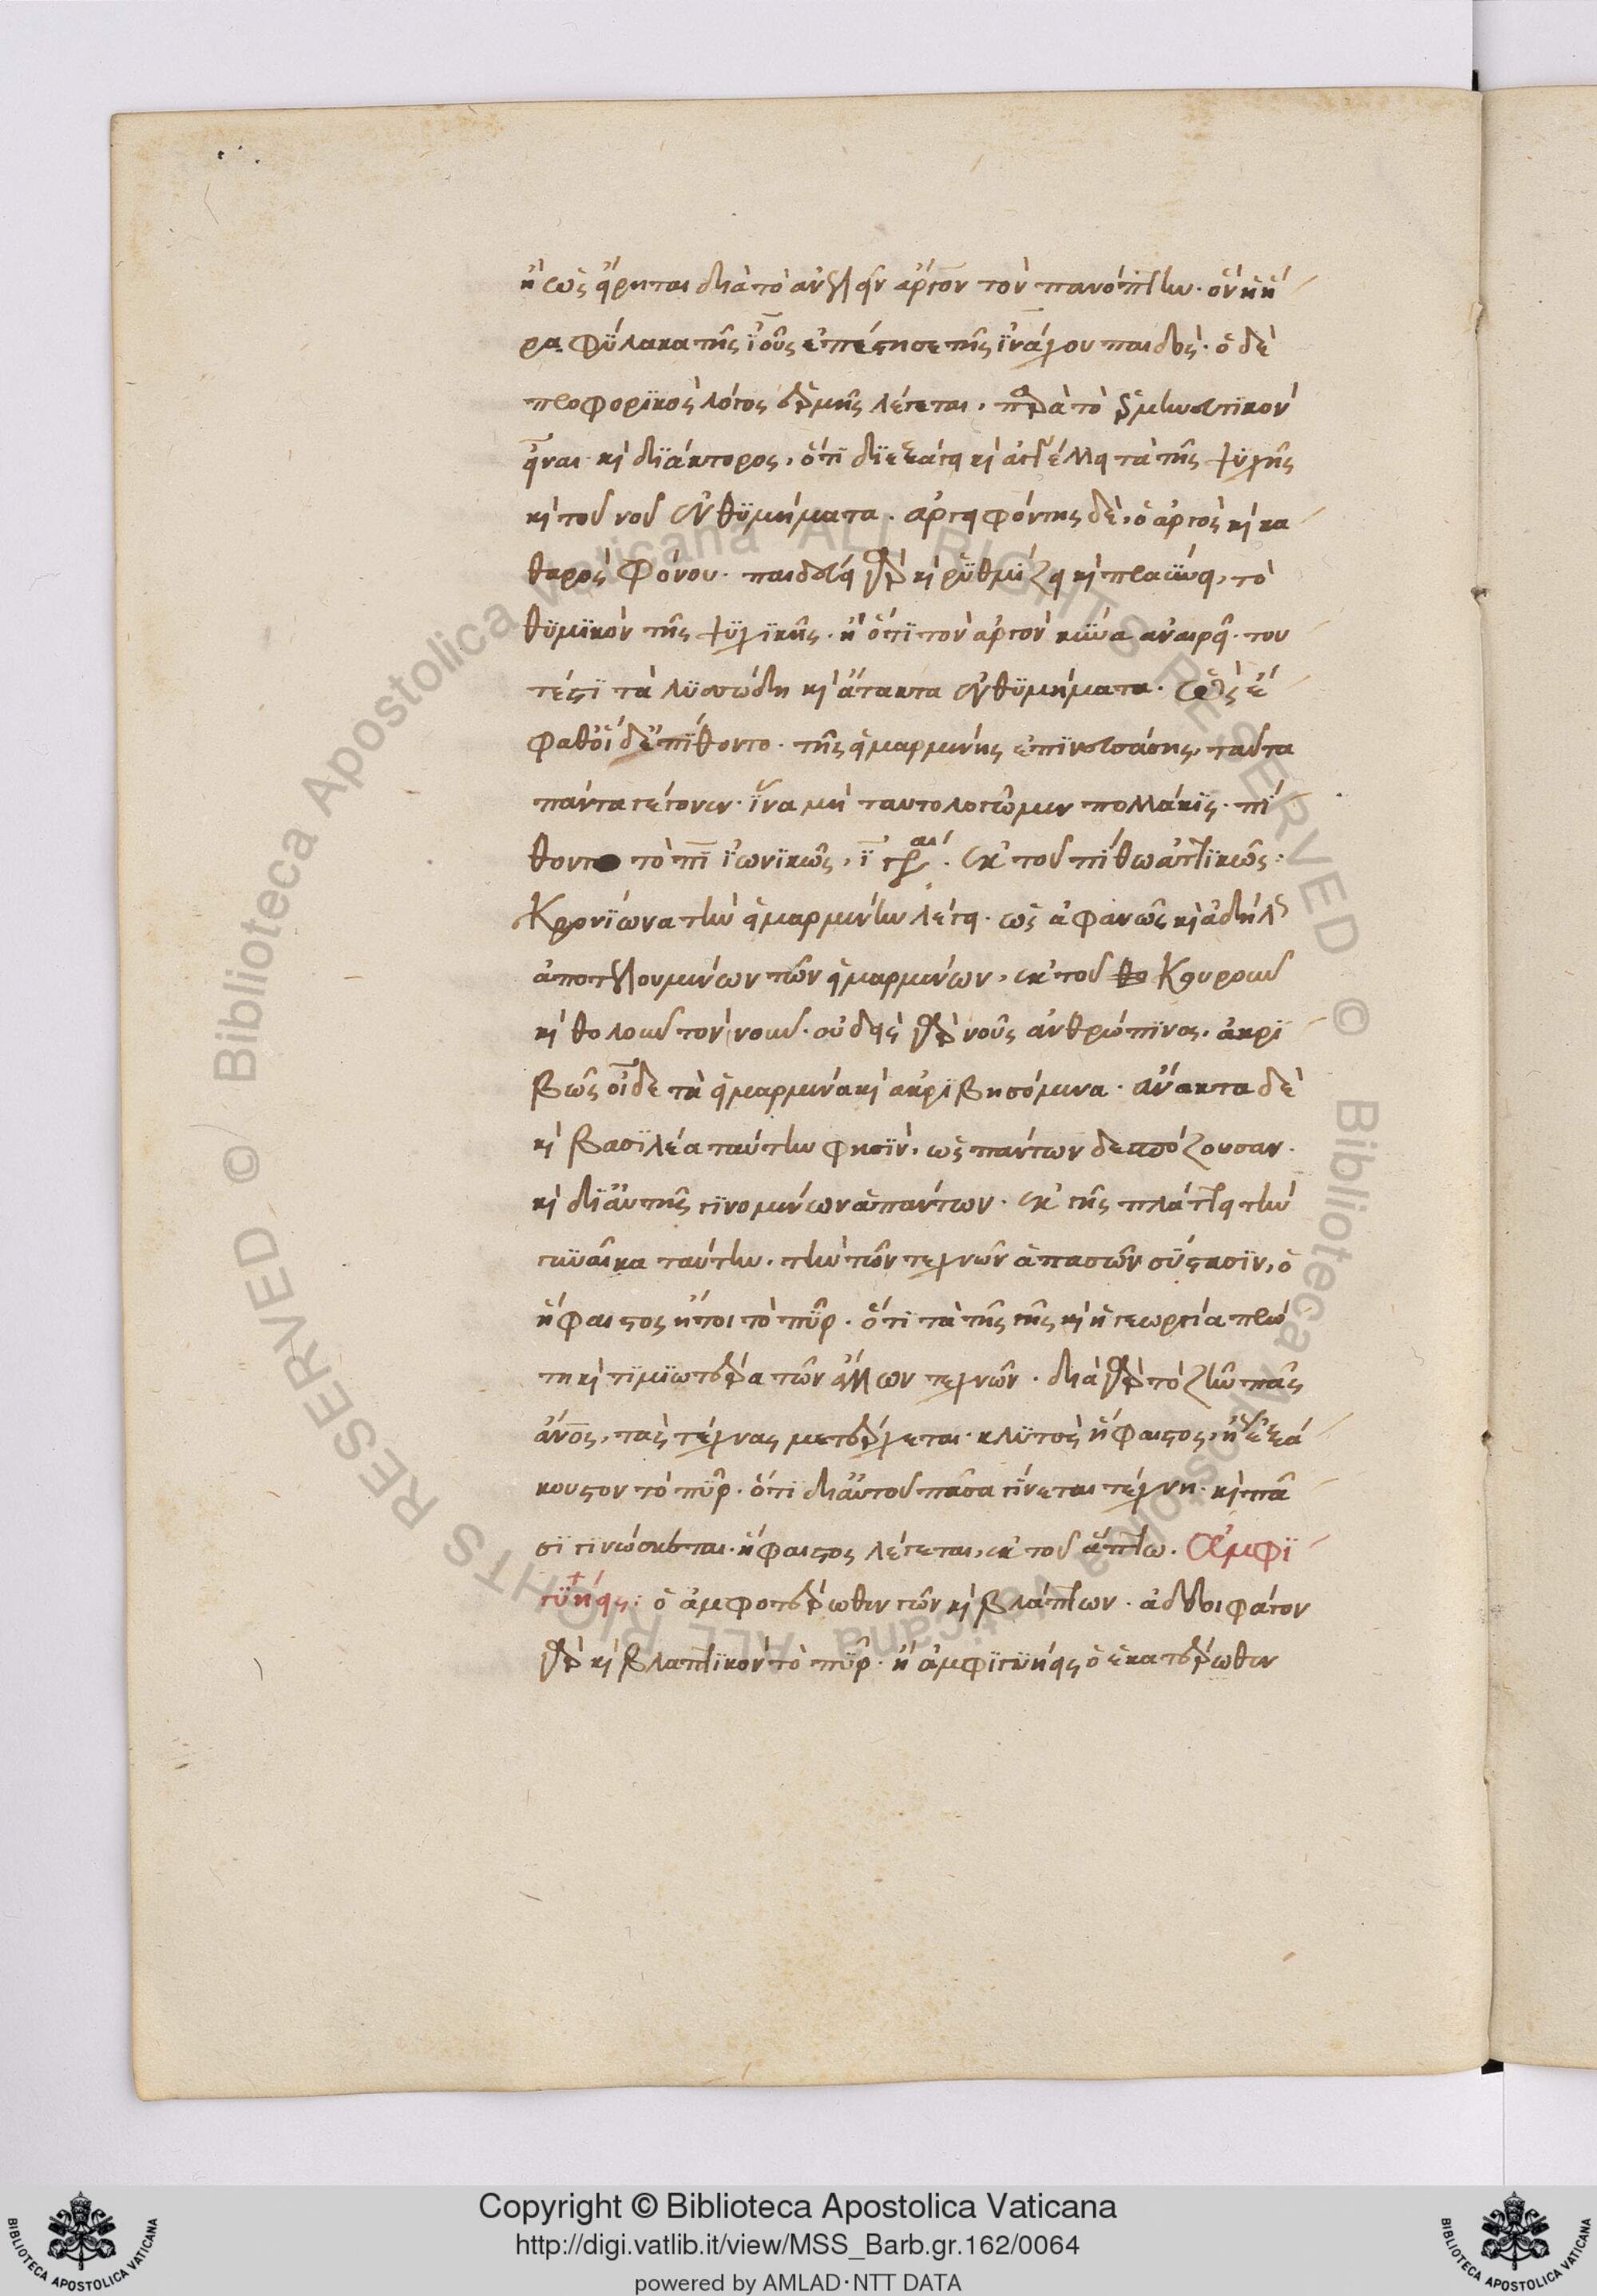 ἢ ὡς εἴρηται διὰ τὸ ἀνελεῖν ἄργον τὸν πανόπτην· ὃν ἡ ἥ
ρα φύλακα τῆς ἰοῦς ἐπέστησε τῆς ἰνάχου παιδός· ὁ δὲ
προφορικὸς λόγος ἑρμῆς λέγεται, παρὰ τὸ ἑρμηνευτικὸν
εἶναι· κὶ διάκτορος, ὅτι διεξάγει κὶ ἀγγέλλει τὰ τῆς ψυχῆς
κὶ τοῦ νοῦ ἐνθυμήματα. ἀργειφόντης δὲ, ὁ ἀργὸς κὶ κα
θαρὸς φόνου· παιδεύει γὰρ κὶ ῥυθμίζει κὶ πραΰνει, τὸ
θυμικὸν τῆς ψυχικῆς· ἢ ὅτι τὸν ἀργὸν κύνα ἀναιρεῖ· του
τέστι τὰ λυσσώδη κὶ ἄτακτα ἐνθυμήματα. ὣς ἔ
φαθ' οἱ δ' ἐπίθοντο· τῆς εἱμαρμένης ἐπινευσάσης, ταῦτα
πάντα γέγονεν· ἵνα μὴ ταυτολογῶμεν πολλάκις· πί
θοντο τὸ πι ἰωνικῶς, ι γραι. ἐκ τοῦ πίθω ἀττικῶς:
Κρονίωνα τὴν εἱμαρμένην λέγει· ὡς ἀφανῶς κὶ ἀδήλως
ἀποτελουμένων τῶν εἱμαρμένων, ἐκ τοῦ Κρουροιοῦ
κὶ θολοιοῦ τὸν νοῦν· οὐδεὶς γὰρ νοῦς ἀνθρώπινος, ἀκρι
βῶς οἶδε τὰ εἱμαρμένα κὶ ἀκριβησόμενα. ἄνακτα δὲ
κὶ βασιλέα ταύτην φησὶν, ὡς πάντων δεσπόζουσαν·
κὶ δι' αὐτῆς γινομένων ἁπάντων. ἐκ γῆς πλάττει τὴν
γυναῖκα ταύτην. τὴν τῶν τεχνῶν ἁπασῶν σύστασιν, ὁ
ἥφαιστος ἤτοι τὸ πῦρ. ὅτι τὰ τῆς γῆς κὶ ἡ γεωργία πρώ
τη κὶ τιμιωτέρα τῶν ἄλλων τεχνῶν. διὰ γὰρ τὸ ζῆν πᾶς
ἄνος, τὰς τέχνας μετέρχεται· κλυτὸς ἥφαιστος, ἢ ἐξά
κουστον τὸ πῦρ. ὅτι δι' αὐτοῦ πᾶσα γίνεται τέχνη· κὶ πᾶ
σι γινώσκεται· ἥφαιστος λέγεται, ἐκ τοῦ ἅπτω. Ἀμφι
γυήεις: ὁ ἀμφοτέρωθεν τῶν κὶ βλάπτων. ἀδδηφάγον
γὰρ κὶ βλαπτικὸν τὸ πῦρ. ἢ ἀμφιγυήεις ὁ ἑκατέρωθεν
Copyright © Biblioteca Apostolica Vaticana
http://digi.vatlib.it/view/MSS_Barb.gr.162/0064
powered by AMLAD·NTT DATA